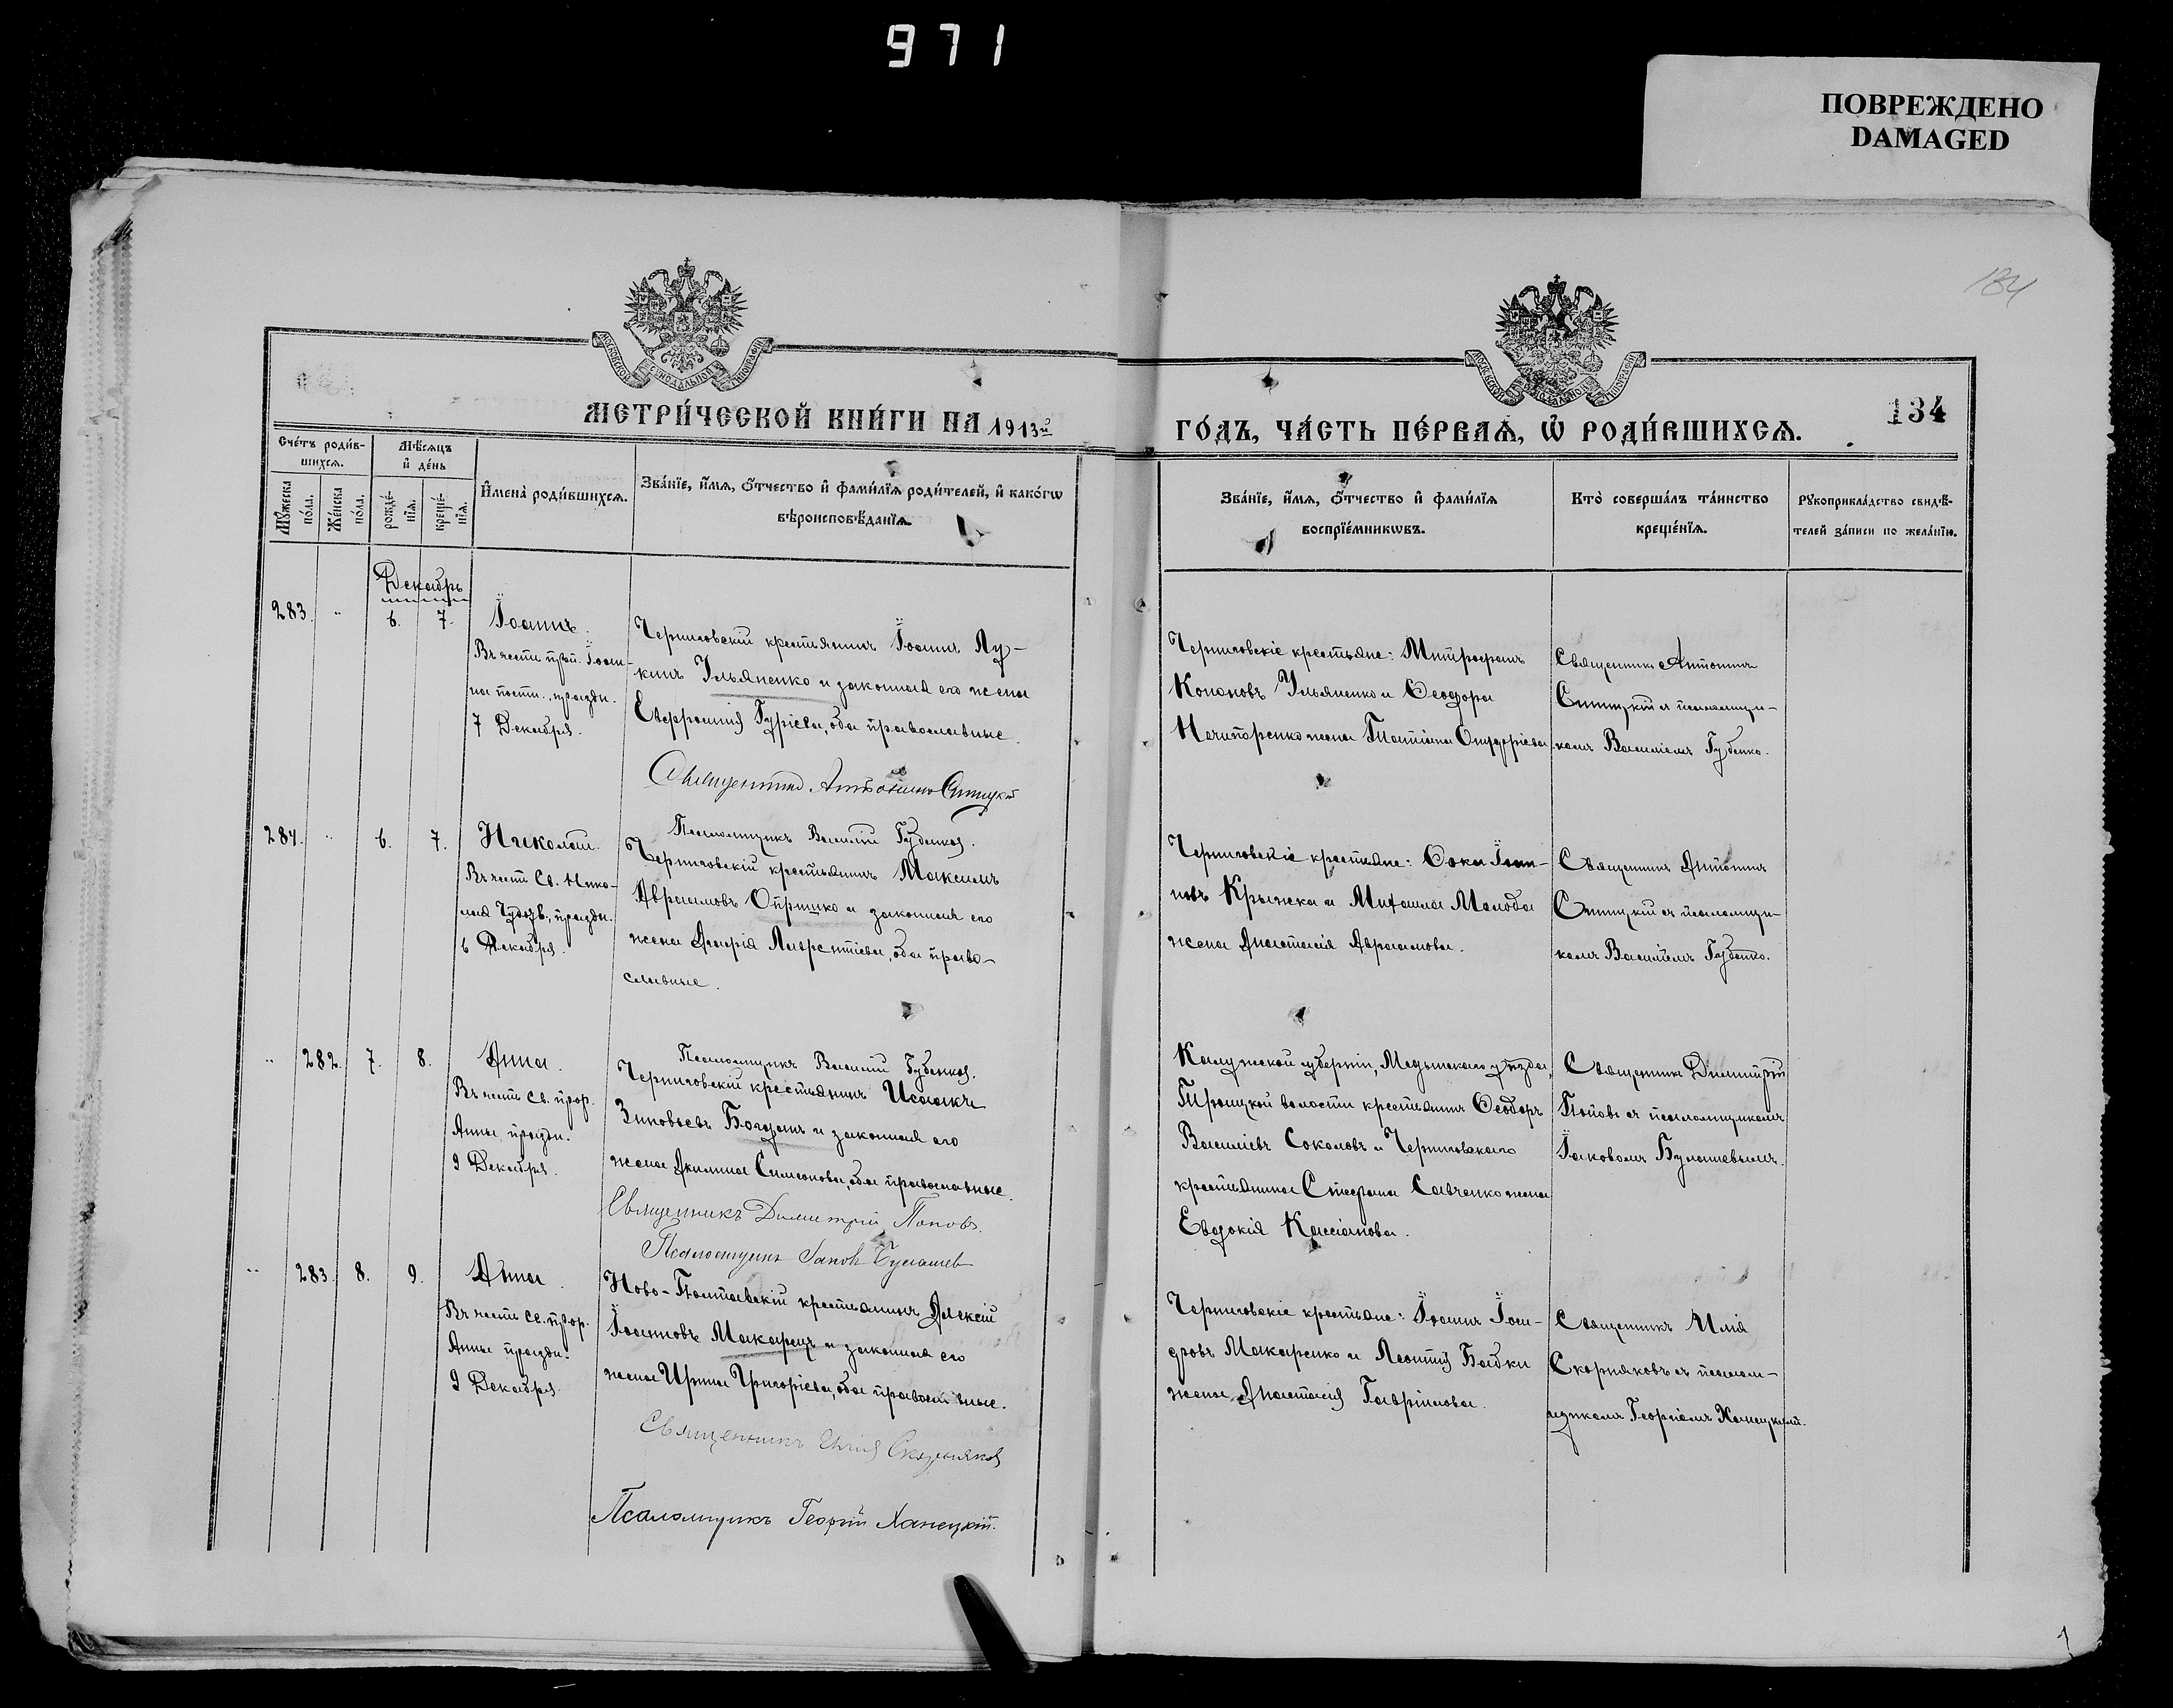 971
ПОВРЕЖДЕНО
DAMAGED
134
МОСКОВСКОЙ СѴНОДАЛЬНОЙ ТИПОГРАФІИ
МОСКОВСКОЙ СѴНОДАЛЬНОЙ ТИПОГРАФІИ
МЕТРИ́ЧЕСКОЙ КНИ́ГИ НА 1913й
ГО́ДЪ, ЧА́СТЬ ПЕ́РВАѦ, Ѡ҆ РОДИ́ВШИХСѦ.
134
Сче́тъ роди́в-
шихсѧ.
Мꙋ́жеска по́ла.
Же́нска по́ла.
Мѣ́сѧцъ
и҆ де́нь
рожде́-
нїѧ.
креще́-
нїѧ.
И҆мена̀ роди́вшихсѧ.
Зва́нїе, и҆́мѧ, ѻ҆́тчество и҆ фами́лїѧ роди́телей, и҆ како́гѡ
вѣроисповѣ́данїѧ.
Зва́нїе, и҆́мѧ, ѻ҆́тчество и҆ фами́лїѧ
воспрїе́мникѡвъ.
Кто̀ соверша́лъ та́инство
креще́нїѧ.
Рꙋкоприкла́дство свидѣ́-
телей за́писи по жела́нїю.
Декабрь
283. " 6. 7. Іоаннъ.
Въ честь преп. Іоан-
на постн., праздн.
7 Декабря.
Черниговскій крестьянинъ Іоаннъ Лу-
кинъ Ульяненко и законная его жена
Евфросинія Гуріева, оба православные.
Священникъ Антонинъ Спицкій
Псаломщикъ Василій Губенко.
Черниговскіе крестьяне: Митрофанъ
Кононовъ Ульяненко и Ѳеодора
Ничипоренко жена Татіана Онуфріева
Священникъ Антонинъ
Спицкій и псаломщи-
комъ Василіемъ Губенко.
284. " 6. 7. Николай.
Въ честь Св. Нико-
лая Чудотв., праздн.
6 Декабря.
Черниговскій крестьянинъ Максимъ
Авраамовъ Опришко и законная его
жена Дарія Лаврентіева, оба право-
славные.
Псаломщикъ Василій Губенко.
Черниговскіе крестьяне: Ѳока Іоан-
новъ Крыжка и Михаила Молоба
жена Анастасія Авраамова.
Священникъ Антонинъ
Спицкій съ псаломщи-
комъ Василіемъ Губенко.
" 282. 7. 8. Анна.
Въ честь Св. прор.
Анны, праздн.
9 Декабря.
Черниговскій крестьянинъ Исаакъ
Зиновьевъ Богданъ и законная его
жена Акилина Симеонова, оба православные.
Священникъ Димитрій Поповъ.
Псаломщикъ Іаковъ Булашев
Калужской губерніи, Медынскаго уѣзда,
Троицкой волости крестьянинъ Ѳеодоръ
Василіевъ Соколовъ и Черниговскаго
крестьянина Стефана Савченко жена
Евдокія Кассіанова.
Священникъ Димитрій
Поповъ съ псаломщикомъ
Іаковомъ Булашевымъ.
" 283. 8. 9. Анна.
Въ честь Св. прор.
Анны праздн.
9 Декабря.
Ново-Полтавскій крестьянинъ Алексій
Іоанновъ Макарецъ и законная его
жена Ирина Григоріева, оба православные.
Священникъ Илія Скорняковъ
Псаломщикъ Георгій Ханецкій.
Черниговскіе крестьяне: Іоаннъ
Макаренко и Леонтія Бабки
жена Анастасія Гавріилова.
Священникъ Илія
Скорняковъ съ псалом-
щикомъ Георгіемъ Ханецкимъ.